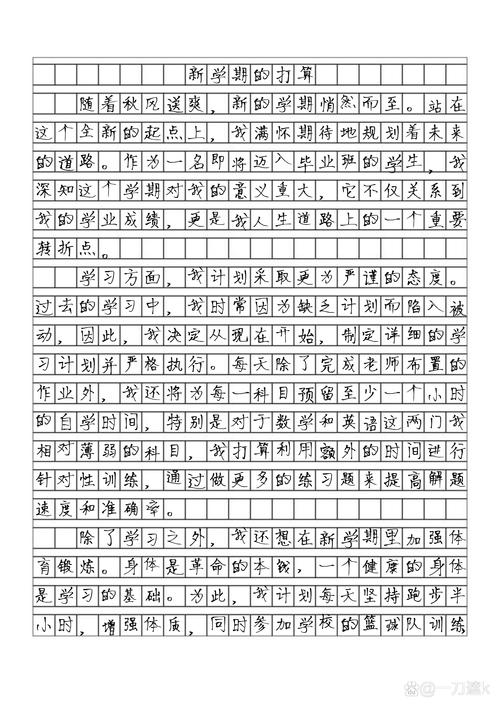 新学期的打算
随着秋风送爽，新的学期悄然而至。站在
这个全新的起点上，我满怀期待地规划着未来
的道路。作为一名即将迈入毕业班的学生，我
深知这个学期对我的意义重大，它不仅关系到
我的学业成绩，更是我人生道路上的一个重要
转折点。
学习方面，我计划采取更为严谨的态度。
过去的学习中，我时常因为缺乏计划而陷入被
动，因此，我决定从现在开始，制定详细的学
习计划并严格执行。每天除了完成老师布置的
作业外，我还将为每一科目预留至少一个小时
的自学时间，特别是对于数学和英语这两门我
相对薄弱的科目，我打算利用额外的时间进行
针对性训练，通过做更多的练习题来提高解题
速度和准确率。
除了学习之外，我还想在新学期里加强体
育锻炼。身体是革命的本钱，一个健康的身体
是学习的基础。为此，我计划每天坚持跑步半
小时，增强体质，同时参加学校的篮球队训练
一刀遠k